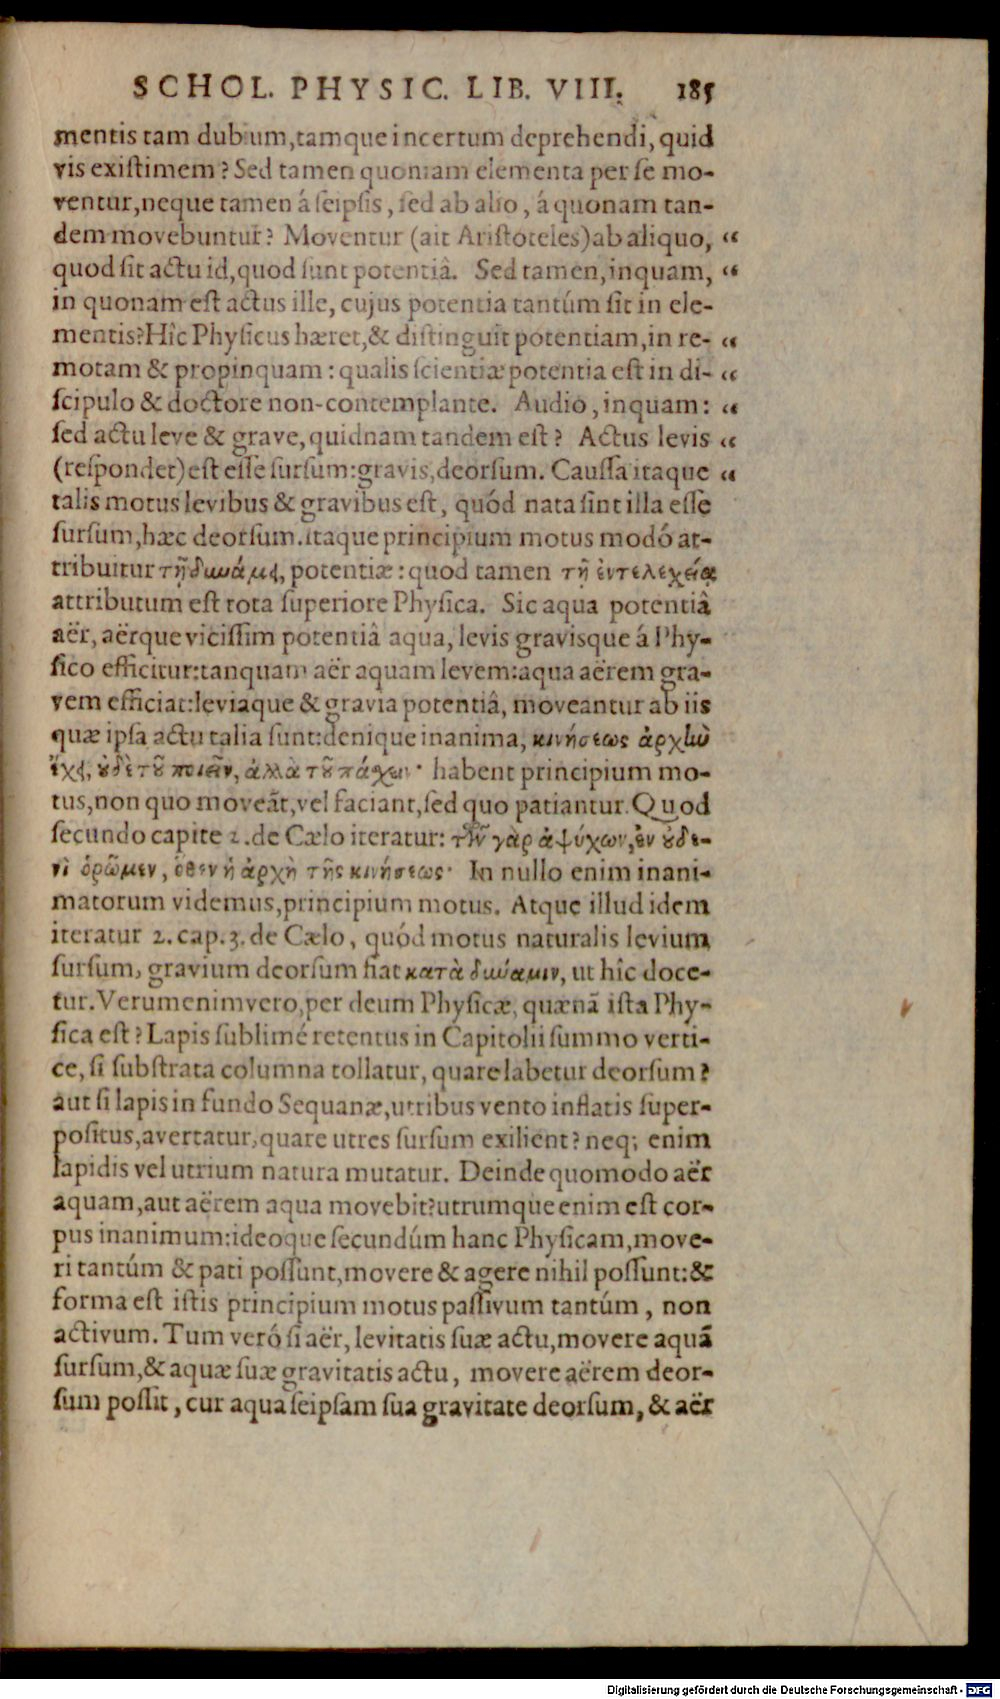 SCHOL. PHYSIC. LIB. VIII. 185
mentis tam dubium, tamque incertum deprehendi, quid
vis existimem? Sed tamen quoniam elementa per se mo-
ventur, neque tamen á seipsis, sed ab alio, á quonam tan-
dem movebuntur? Moventur (ait Aristoteles) ab aliquo, “
quod sit actu id, quod sunt potentiâ. Sed tamen, inquam, “
in quonam est actus ille, cujus potentia tantúm sit in ele-
mentis? Hîc Physicus hæret, & distinguit potentiam, in re- “
motam & propinquam: qualis scientiæ potentia est in di- “
scipulo & doctore non-contemplante. Audio, inquam: “
sed actu leve & grave, quidnam tandem est? Actus levis “
(respondet) est esse sursum: gravis, deorsum. Caussa itaque “
talis motus levibus & gravibus est, quód nata sint illa esse
sursum, hæc deorsum. itaque principium motus modó at-
tribuitur τῇ δυνάμει, potentiæ: quod tamen τῇ ἐντελεχείᾳ
attributum est tota superiore Physica. Sic aqua potentiâ
aër, aërque vicissim potentiâ aqua, levis gravisque á Phy-
sico efficitur: tanquam aër aquam levem: aqua aërem gra-
vem efficiat: leviaque & gravia potentiâ, moveantur ab iis
quæ ipsa actu talia sunt: denique inanima, κινήσεως ἀρχὴν
ἔχει, οὐδὲ τοῦ ποιεῖν, ἀλλὰ τοῦ πάχειν· habent principium mo-
tus, non quo moveāt, vel faciant, sed quo patiantur. Quod
secundo capite 2. de Cælo iteratur: τῶν γὰρ ἀψύχων, ἐν οὐδε-
νὶ ὁρῶμεν, ὅθεν ἡ ἀρχὴ τῆς κινήσεως· In nullo enim inani-
matorum videmus, principium motus. Atque illud idem
iteratur 2. cap. 3. de Cælo, quód motus naturalis levium
sursum, gravium deorsum fiat κατὰ δύναμιν, ut hîc doce-
tur. Verumenimvero, per deum Physicæ, quænā ista Phy-
sica est? Lapis sublimé retentus in Capitolii summo verti-
ce, si substrata columna tollatur, quare labetur deorsum?
aut si lapis in fundo Sequanæ, utribus vento inflatis super-
positus, avertatur, quare utres sursum exilient? neq; enim
lapidis vel utrium natura mutatur. Deinde quomodo aër
aquam, aut aërem aqua movebit? utrumque enim est cor-
pus inanimum: ideoque secundúm hanc Physicam, move-
ri tantúm & pati possunt, movere & agere nihil possunt: &
forma est istis principium motus passivum tantúm, non
activum. Tum veró si aër, levitatis suæ actu, movere aquā
sursum, & aquæ suæ gravitatis actu, movere aërem deor-
sum possit, cur aqua seipsam sua gravitate deorsum, & aër
Digitalisierung gefördert durch die Deutsche Forschungsgemeinschaft - DFG